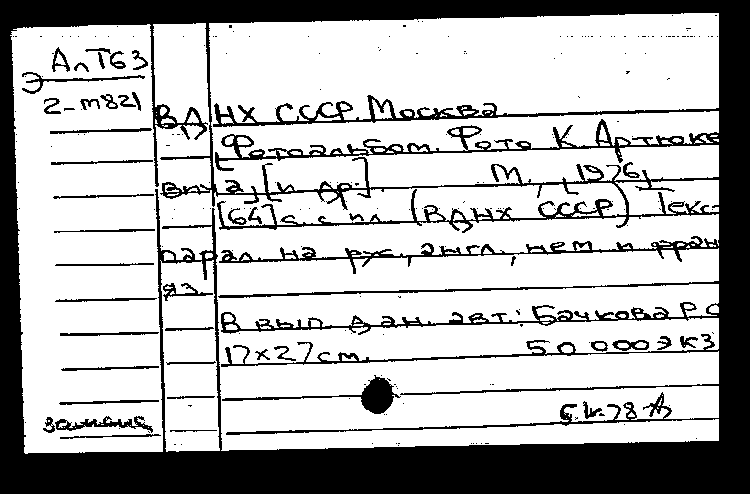 АлТ63
Э
2-м821
ВДНХ СССР. Москва.
[Фотоальбом. Фото К. Артюке
вича, [и др.]. М., [1976].
[64] с. с ил. (ВДНХ СССР) Текс
парал. на рус., англ., нем. и фран
яз.
В вып. дан. авт.: Бачкова Р.О
17х27см. 50 000экз
замена